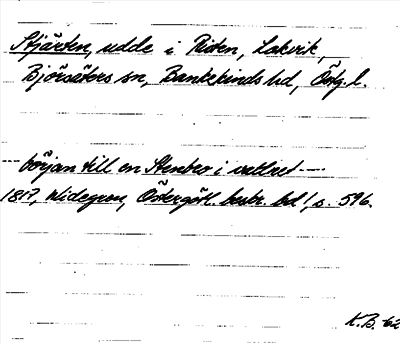 Stjärten, udde i Risten, Lakvik,
Björsäters sn, Bankekinds hd, Östg. l.
--- början till en Stenbro i vattnet ---
1817, Widegren, Östergötl. beskr. bd 1, s. 596.
K.B. 62